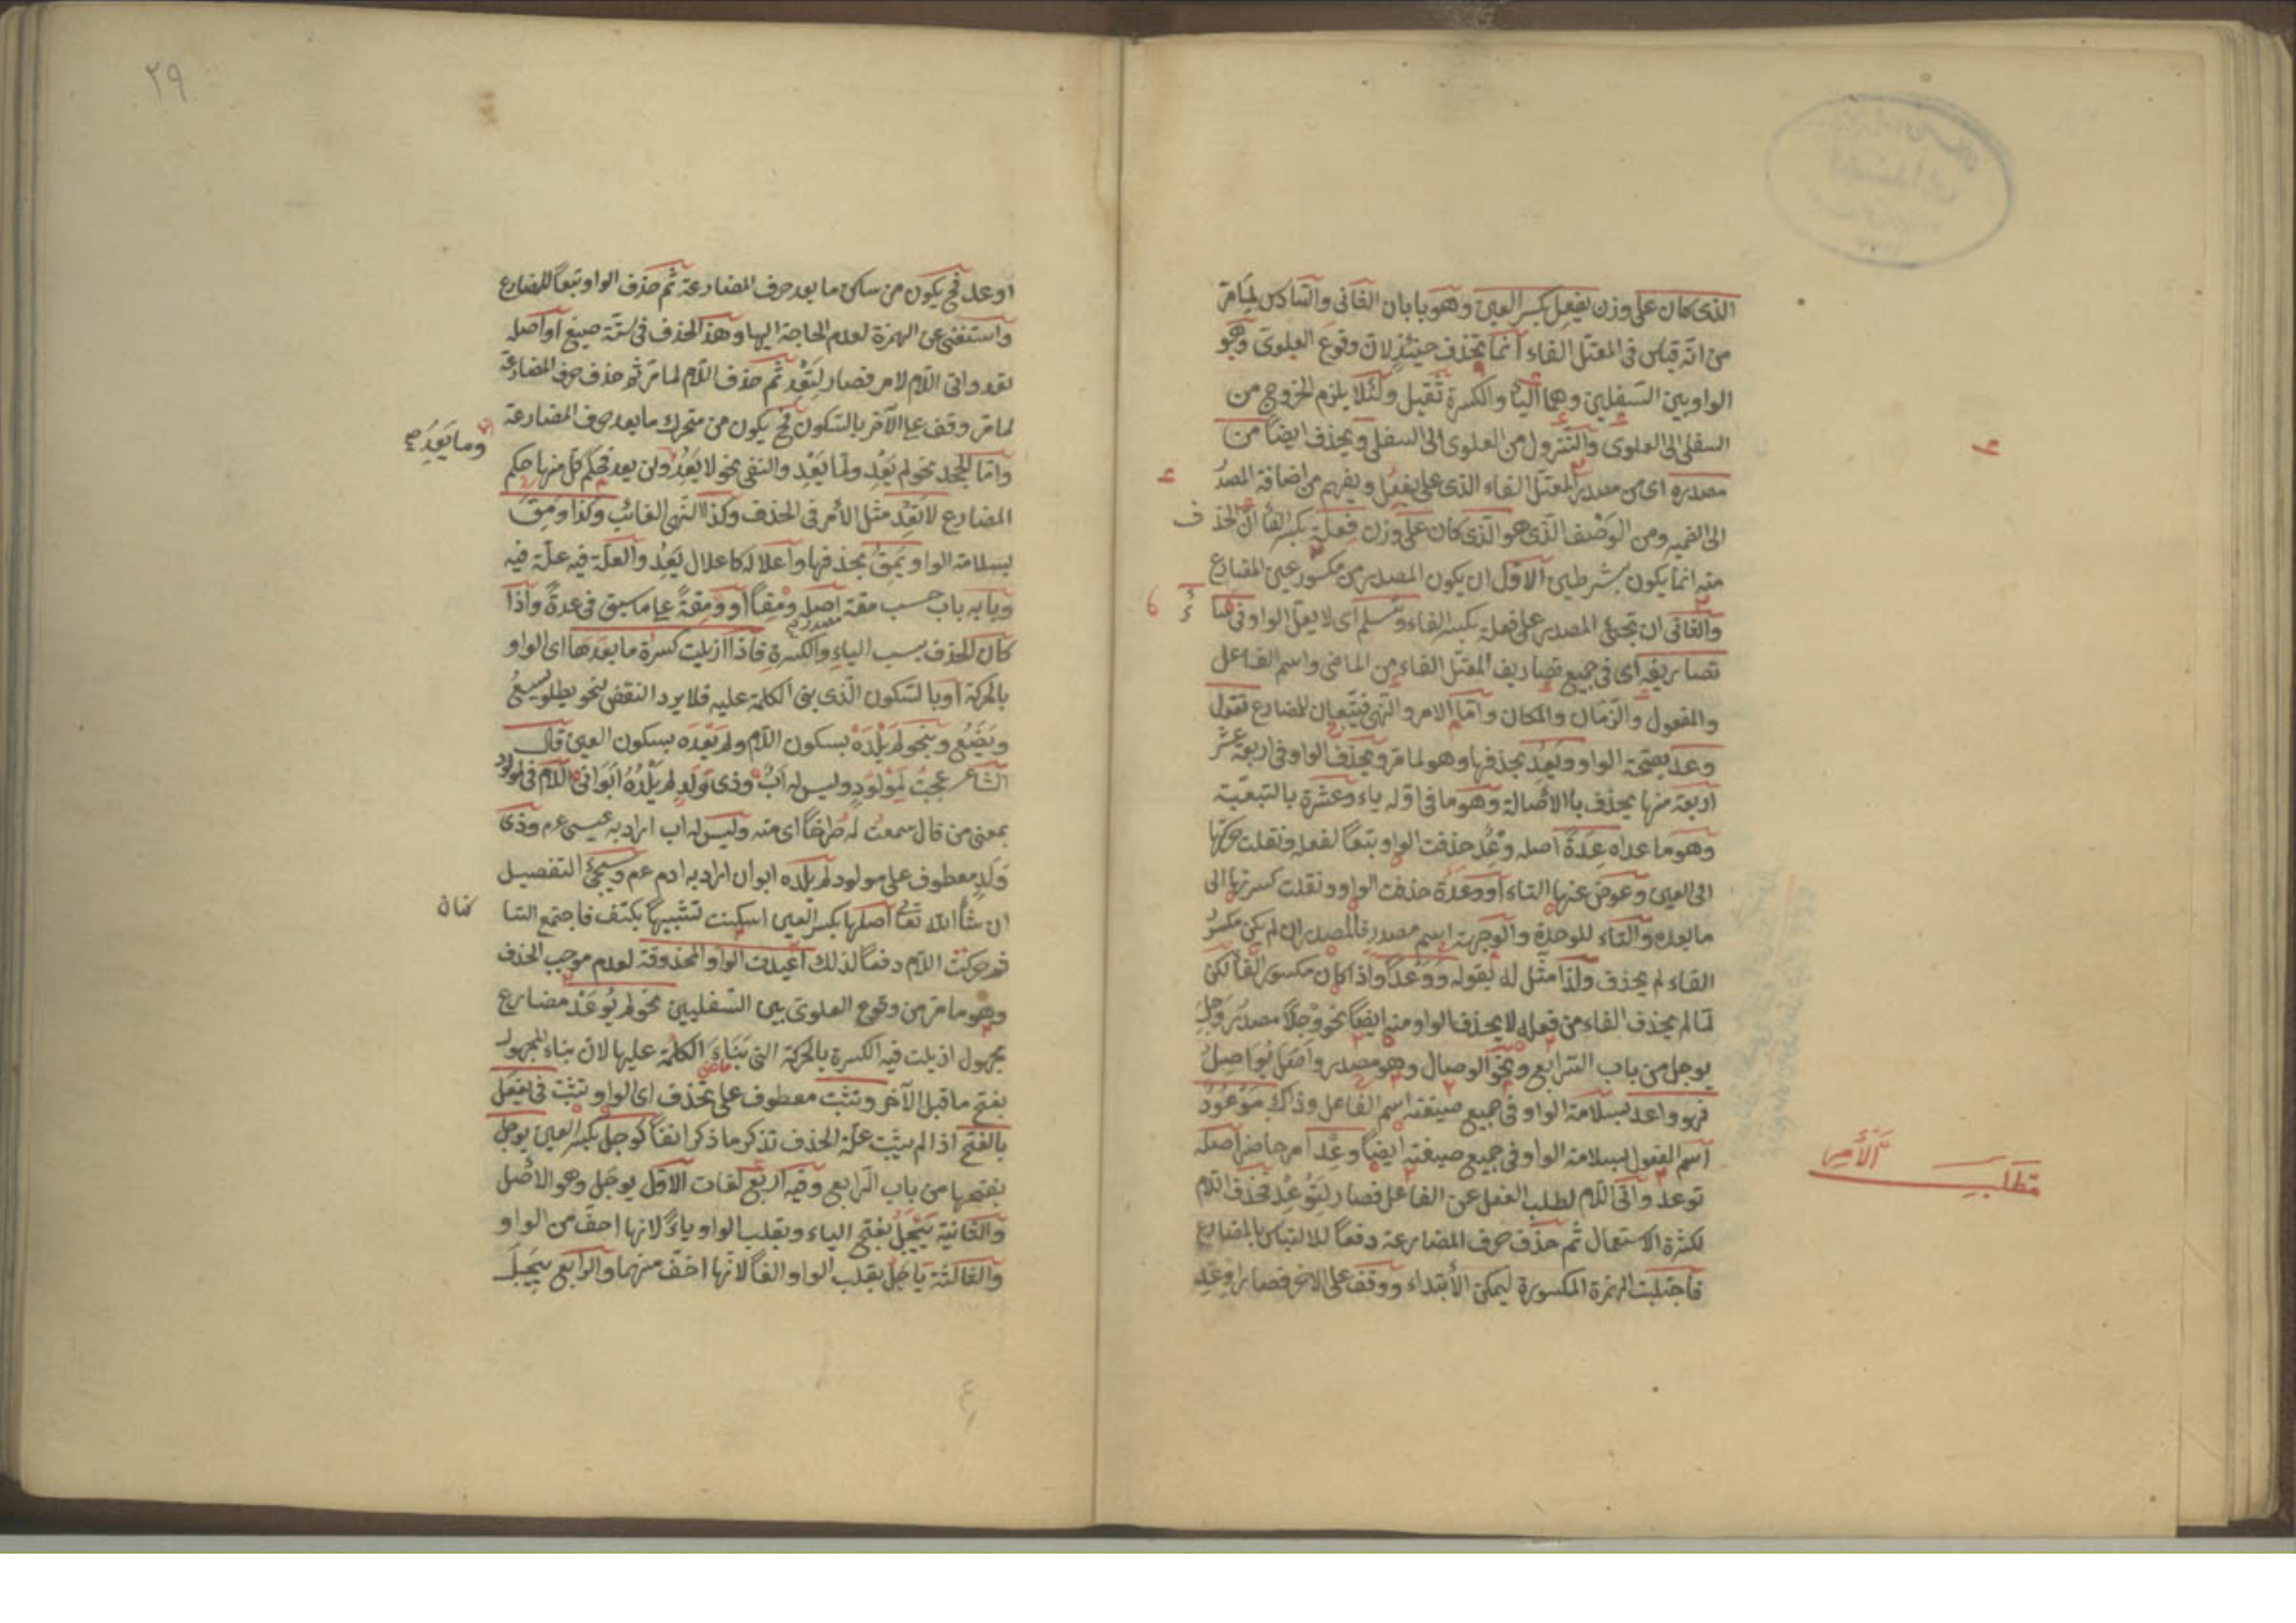 الذى كان على وزن يفعِل بكسر العين وهو بابان الثانى والسادس لما مرّ
من انّه قياس فى المعتل الفاء انما يحذف حينئذ لان وقوع العلوى وهو
الواو بين السفليين وهما الياء والكسرة ثقيل ولئلا يلزم الخروج من
السفلى الى العلوى والنزول من العلوى الى السفلى ويحذف ايضاً من
مصدره اى من مصدر المعتل الفاء الذى على يفعِل ويفهم من اضافة المصدر
الى الضمير ومن الوصف الذى هو الذى كان على وزن فِعلة بكسر الفاء ان الحذف
منه انما يكون بشرطين الاول ان يكون المصدر من مكسور عين المضارع
والثانى ان تجئ المصدر على فعلة بكسر الفاء وتسلم اى لا يعل الواو فى سائر
تصاريفه اى فى جميع تصاريف المعتل الفاء من الماضى واسم الفاعل
والمفعول والزمان والمكان واما الامر والنهى فيتبعان للمضارع تقول
وعد بفتحة الواو ويَعِد بحذفها وهو لما مرّ ويحذف الواو فى اربعة عشر
اربعة منها يحذف بالاصالة وهو ما فى اوله ياء وعشرة بالتبعية
وهو ما عداه عِدَةً اصله وِعْد حذفت الواو تبعاً لفعله ونقلت حركتها
الى العين وعوض عنها التاء او وِعْدَة حذفت الواو ونقلت كسرتها الى
ما بعده والتاء للوحدة والوجهة اسم مصدر فالمصدر ان لم يكن مكسور
الفاء لم يحذف ولذا مثّل له بقوله ووَعْداً واذا كان مكسور الفاء لكن
لما لم يحذف الفاء من فعله لا يحذف الواو منه ايضاً نحو وِجْلاً مصدر وَجِل
يوجل من باب الرابع ونحو الوصال وهو مصدر واصل يُواصِل
فهو واعد بسلامة الواو فى جميع صيغة اسم الفاعل وذاك مَوْعُود
اسم المفعول بسلامة الواو فى جميع صيغته ايضاً وعِد امر حاضر اصله
توعد واتى اللام لطلب الفعل عن الفاعل فصار لِتَوْعِدْ فحذف اللام
لكثرة الاستعمال ثم حذف حرف المضارعة دفعاً للالتباس بالمضارع
فاجتلبت الهمزة المكسورة ليمكن الابتداء ووقف على الاخر فصار اوعِد
مطلب الامر
٢٩
اوعد فح يكون من ساكن ما بعد حرف المضارعة ثم حذف الواو تبعاً للمضارع
واستغنى عن الهمزة لعدم الحاجة اليها وهذا الحذف فى ستّة صيغ او اصله
تعد واتى اللام لامر فصار لِتَعِدْ ثم حذف اللام لما مرّ ثم حذف حرف المضارعة
لما مرّ وقف على الآخر بالسكون فح يكون من متحرك ما بعد حرف المضارعة
واما الجحد نحو لم يَعِدْ ولما يَعِدْ والنفى نحو لا يَعِدُ ولن يعد فحكم كل منها حكم
وما يَعِدُ صح
المضارع لا تَعِدْ مثل الامر فى الحذف وكذا النهى الغائب وكذا وَمِقَ
بسلامة الواو يَمِقُ بحذفها واعلاله كاعلال يَعِدُ والعلة فيه علّة فيه
وبابه باب حسب مقة اصله وِمْقاً او وِمْقَةً على ما سبق فى عدةٍ واذا
كان الحذف بسبب الياء والكسرة فاذا ازيلت كسرة ما بعدها اى الواو
بالحركة او بالسكون الذى بنى الكلمة عليه فلا يرد النقض بنحو يطأ ويسع
ويَضَعُ وبنحو لم يَلْدَه بسكون اللام ولم يَعْدَه بسكون العين قال
الشاعر عجبتُ لِمَوْلودٍ وليس له ابٌ وذى وَلَدٍ لم يَلْدَهُ ابَوانِ اللام فى لمولود
بمعنى من قال سمعت له صراخاً اى منه وليس له اب اراد به عيسى عم وذى
وَلَدٍ معطوف على مولود لم يَلْدَه ابوان اراد به ادم عم وسيجئ التفصيل
ان شاء الله تعا اصلها بكسر العين اسكنت لتشبيهها بكتف فاجتمع الساكنان
فحركت اللام دفعاً لذلك اعيدت الواو المحذوفة لعدم موجب الحذف
وهو ما مرّ من وقوع العلوى بين السفليين نحو لم يُوعَدْ مضارع
مجهول ازيلت فيه الكسرة بالحركة التى بناء الكلمة عليها لان بناء المجهول
بفتح ما قبل الآخر وتثبت معطوف على تحذف اى الواو تثبت فى يفعَل
بالفتح اذا لم يثبت علّة الحذف تذكر ما ذكر انفاً كوجل بكسر العين يوجل
بفتحها من باب الرابع وفيه اربع لغات الاول يوجَل وهو الاصل
والثانية يَيْجَلُ بفتح الياء وبقلب الواو ياءً لانها اخف من الواو
والثالثة ياجَلُ بقلب الواو الفاً لانها اخفّ منهما والرابع يِيجَلُ